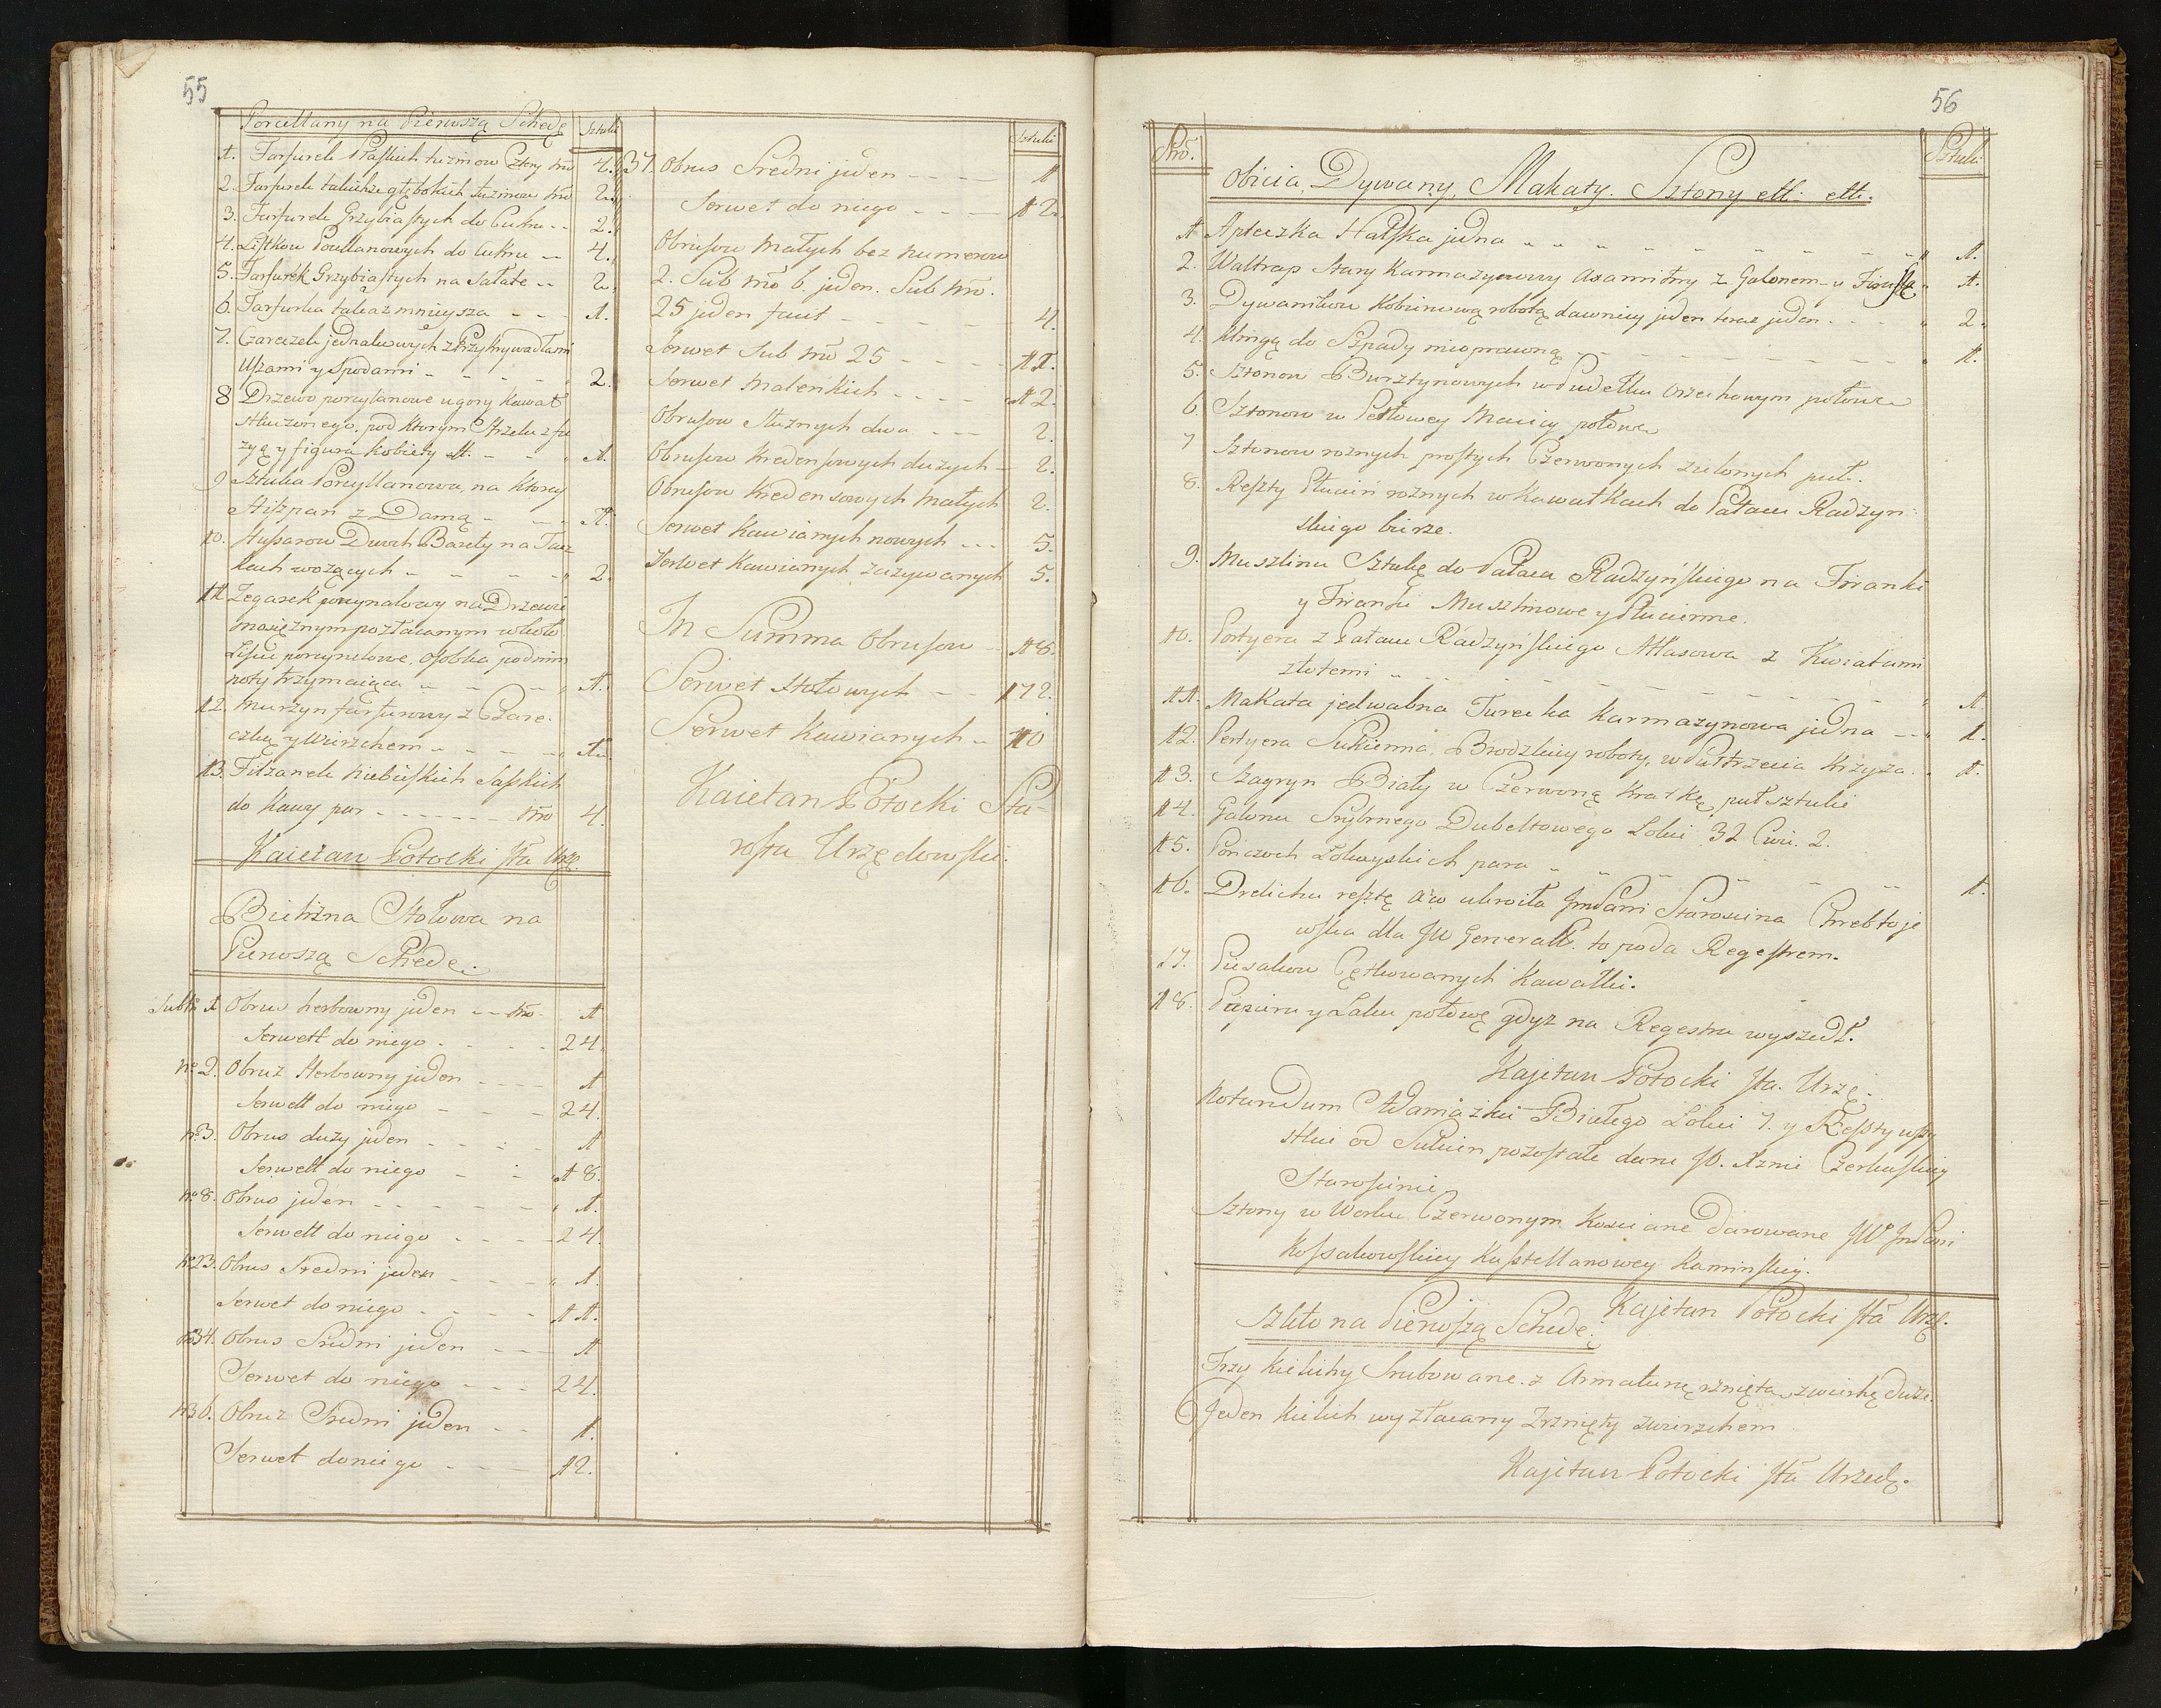 55
Porcellany na Pierwszą Schedę Sztuki
1. Farfurek Płaskich tuzinow Cztery Nro 4.
2. Farfurek takichże głębokich tuzinow Nro 2.
3. Farfurek Grzybiastych do Cukru -- 2.
4. Listkow Porcellanowych do Cukru -- 4.
5. Farfurek Grzybiastych na Sałate -- 2.
6. Farfurka takaż mnieysza - - - 1.
7. Czareczek jednakowych z Przykrywadłami
Uszami y Spodami - - - - 2.
8 Drzewo porcylanowe u gory Kawał
stłuczonego, pod ktorym Strzelec z fu
zyą y figura Kobiety - - 1.
9 Sztuka Porcyllanowa, na ktorey
Hiszpan z Damą - - - 1.
10. Hussarow Dwoch Baryły na Tacz
kach wożących - - - - 2.
11 Zegarek porcynalowy na Drzewie
mosiężnym pozłacanym w koło
Liscie porcynelowe, Osobka pod nim
noty trzymaiąca - - - 1.
12. Murzyn farfurowy z Czare-
czką y Wierzchem - - - - 1.
13. Filiżanek Niebieskich Saskich
do Kawy par - - - - - Nro 4.
Kaietan Potocki Sta Urzę.
Bielizna Stołowa na
Pierwszą Schedę.
Sub No 1 Obrus herbowny jeden -- Nro 1
Serwett do niego - - - - 24.
No 2. Obruz Herbowny jeden - - - - 1
Serwett do niego - - - 24.
No 3. Obrus duży jeden - - - - 1
Serwett do niego - - - 18.
No 8. Obrus jeden - - - - - - 1.
Serwett do niego - - - - 24
No 23. Obrus Sredni jeden - - - 1.
Serwet do niego - - - - 11.
No 34. Obrus Sredni jeden - - - 1
Serwet do niego - - - 24.
No 36. Obruz Sredni jeden - - 1.
Serwet do niego - - - 12.
Sztuki
37. Obrus Sredni jeden - - - - 1
Serwet do niego - - - - 12.
Obrusow małych bez numerow
2. Sub Nro 6. jeden. Sub Nro.
25 jeden facit - - - - - 4.
Serwet Sub Nro 25 - - - - 11.
Serwet maleńkich - - - - 12.
Obrusow Służnych dwa - - - 2.
Obrusow Kredensowych dużych - 2.
Obrusow Kredensowych małych 2.
Serwet Kawianych nowych - - - 5.
Serwet Kawianych zażywanych 5.
In Summa Obrusow - 18.
Serwet stołowych - - 172.
Serwet Kawianych - 10
Kaietan Potocki Sta-
rosta Urzędowski.
56
Nro. Sztuki
Obicia, Dywany, Makaty. Sztony ett: ett:
1 Apteczka Halska jedna 1.
2. Waltrap Stary Karmazynowy Axamitny z Galonem y 1.
3. Dywanikow Kobiercową robotą dawniey jeden teraz jeden - - 2.
4. Klingą do Szpady nieoprawną - - - - 1.
5. Sztonow Bursztynowych w Pudełku orzechowym połowa
6. Sztonow w Perłowey Macicy połowa
7 Sztonow roznych prostych Czerwonych zielonych puł.
8. Reszty Płucień roznych w Kawałkach do Pałacu Radzyń-
skiego bierze.
9. Muszlinu Sztukę do Pałacu Radzyńskiego na Firanki
y Firanki Muszlinowe y Płucienne.
10. Portyera z Pałacu Radzyńskiego Atłasowa z Kwiatami
złotemi - - - - 1
11. Makata jedwabna Turecka Karmazynowa jedna - - 1.
12. Portyera Sukienna, Brodzkiey roboty, w Puł trzecia Krzyża. 1.
13. Szagryn Biały w Czerwoną Kratkę puł sztuki
14. Galonu Srybrnego Dubeltowego Lokci 32 Cwi. 2.
15. Pończoch Lokayskich para 1.
16. Drelichu resztę a co ukroiła Jmć Pani Starościna Chrebtoje
wska dla JW Generała P. to poda Regestrem.
17. Piesakow Cętkowanych Kawałki.
18. Papieru y Laku połowę gdyz na Regestra wyszedł.
Kajetan Potocki Sta. Urzę.
Notandum Adamaszku Białego Lokci 7. y Reszty
od Sukien pozostałe dane Czerkaskiey
Starościnie
Sztony w Worku Czerwonym Kosciane Darowane JW Jmć Pani
Kossakowskiey Kasztellanowey Kaminskiey.
Kajetan Potocki Sta Urzę.
Szkło na Pierwszą Schedę.
Trzy Kielichy Srubowane z Armaturą rznięta z wierchę duże.
Jeden Kielich wyzłacany Zrznięty z wierzchem
Kajetan Potocki Sta Urzędę.